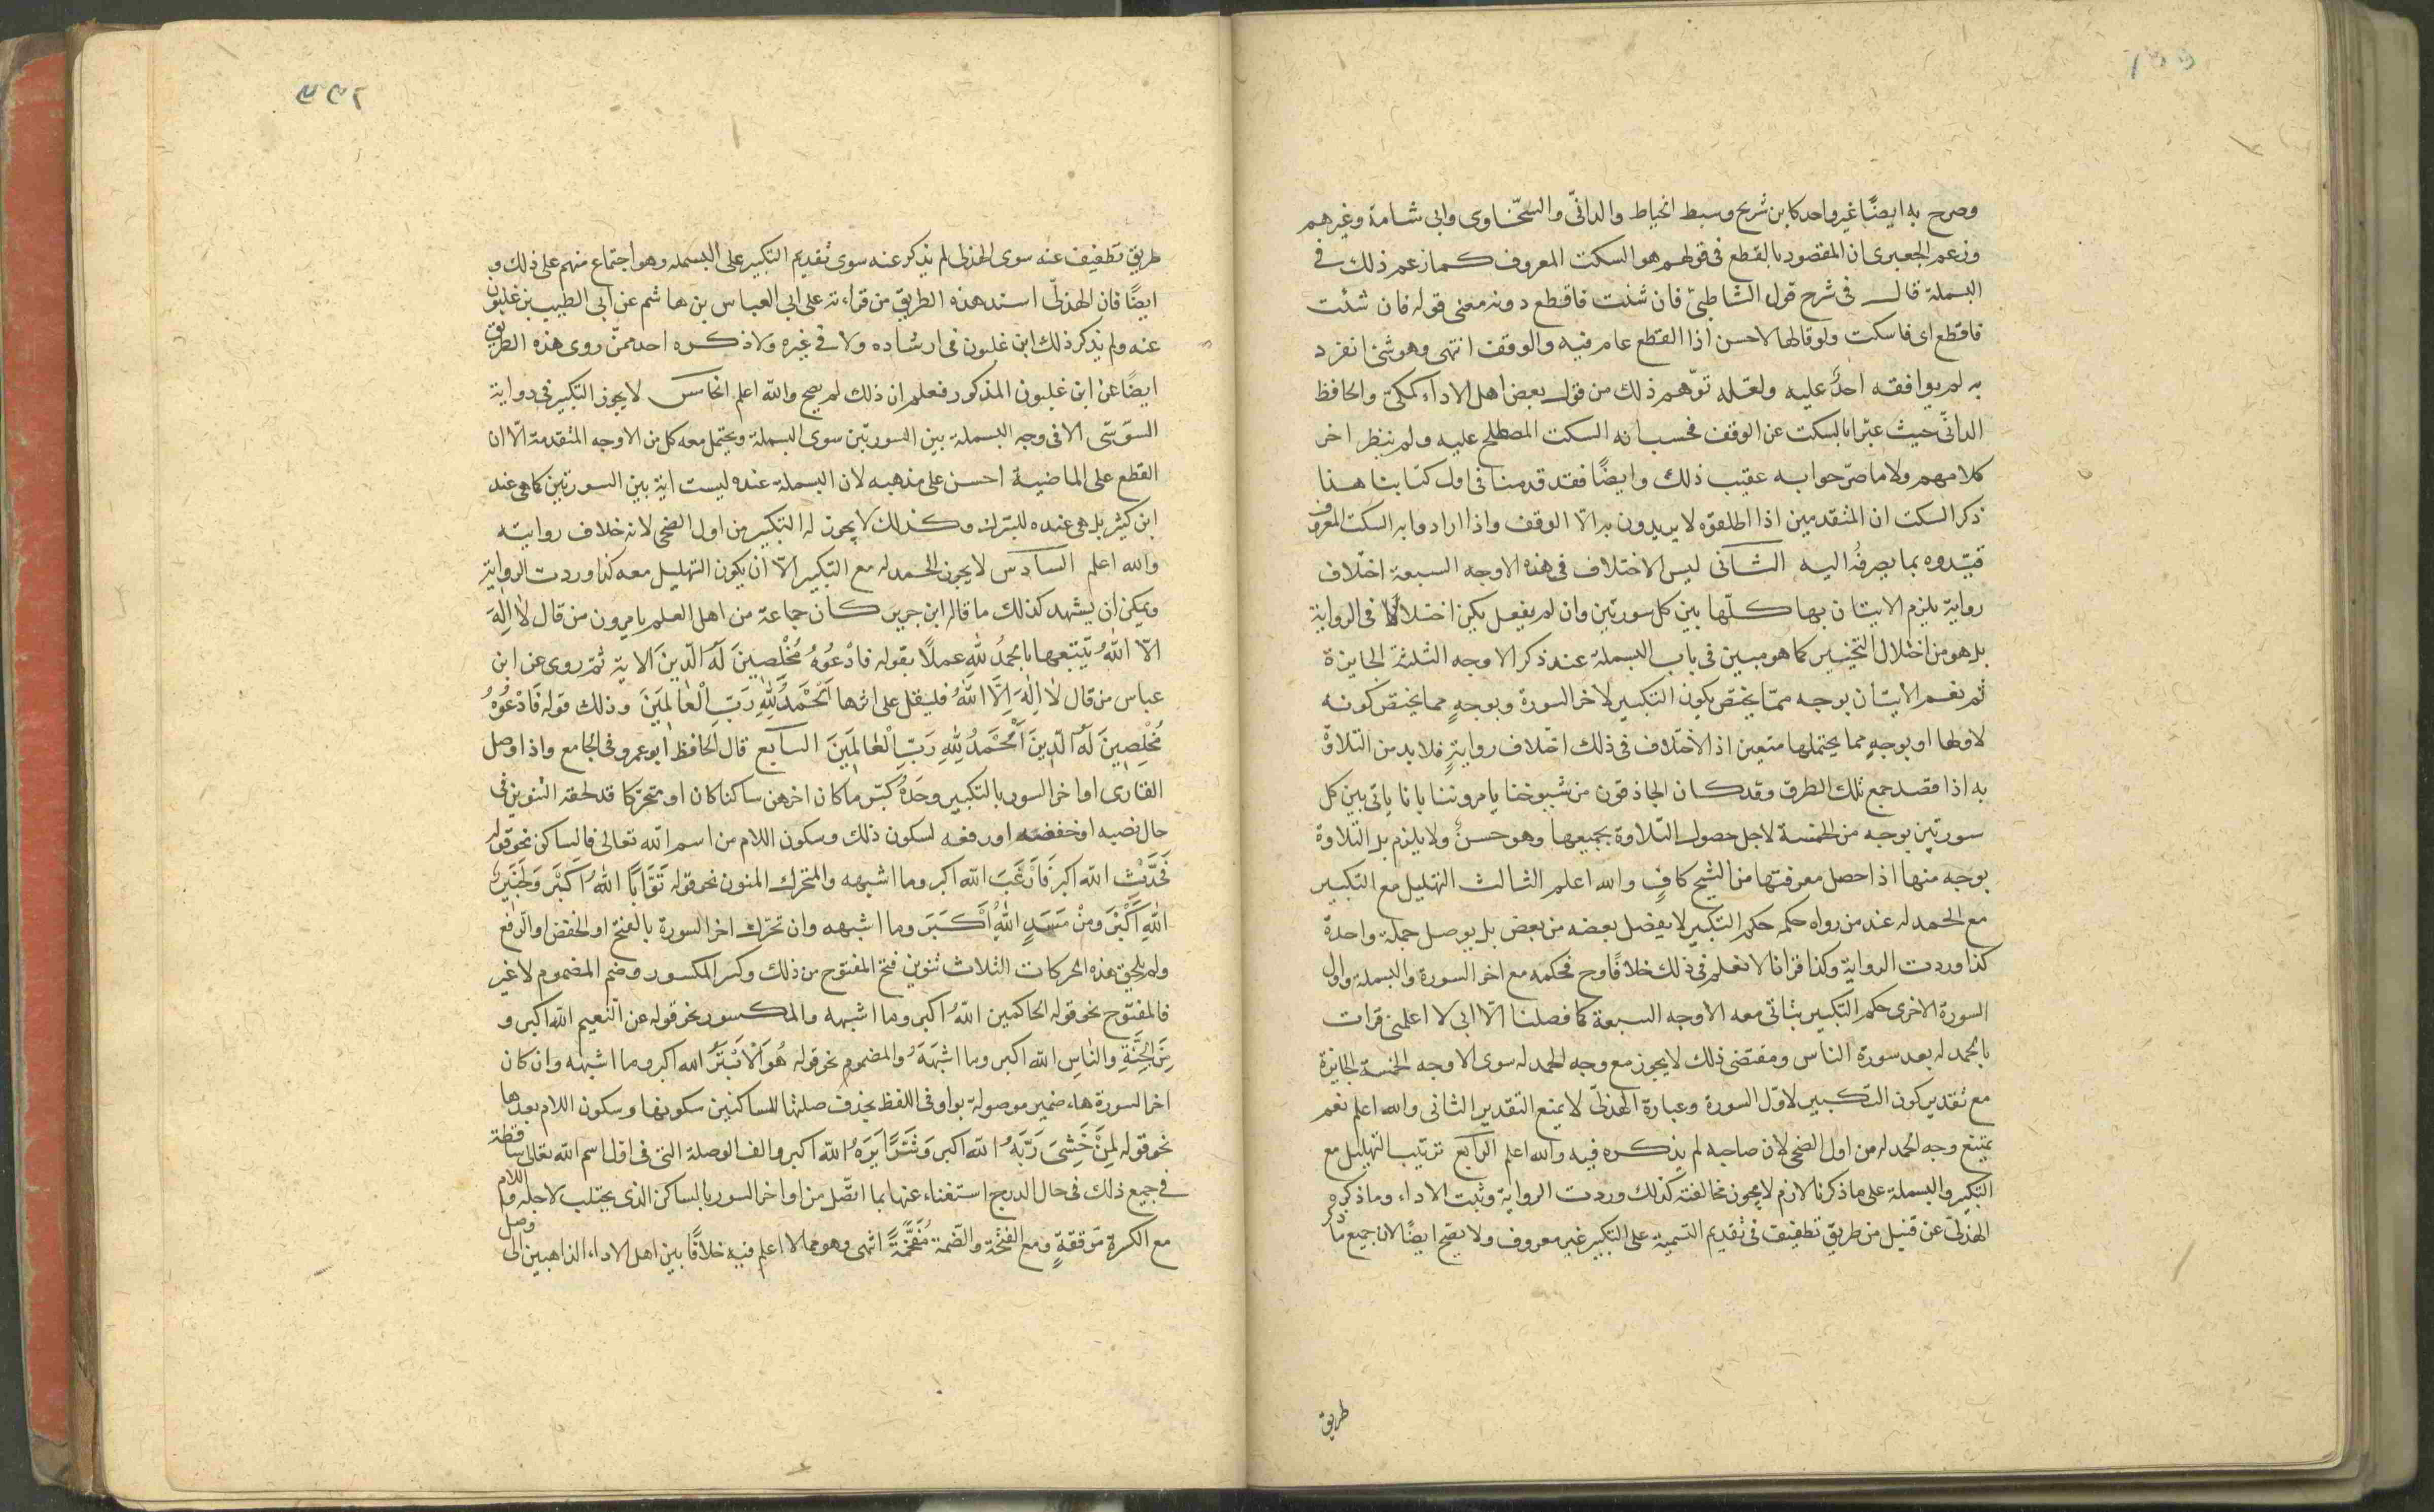 وصرح به ايضًا غير واحد كابن شريح وسبط الخياط والدانىّ والسّخاوى وابى شامة وغيرهم
وزعم الجعبرى ان المقصود بالقطع فى قولهم هو السكت المعروف كما زعم ذلك فى
البسملة قال فى شرح قول الشاطبىّ فان شئت فاقطع دونه معنى قوله فان شئت
فاقطع اى فاسكت ولو قالها لاحسن اذا القطع عام فيه والوقف انتهى وهو شئ انفرد
به لم يوافقه احدٌ عليه ولعّله توّهم ذلك من قول بعض اهل الاداء كمكىّ والحافظ
الدانّى حيث عبّرا بالسكت عن الوقف فحسب انه السكت المصطلح عليه ولم ينظر اخر
كلامهم ولا ما صرّحوا به عقيب ذلك وايضًا فقد قدمنا فى اول كتابنا هذا
ذكر السكت ان المتقدمين اذا اطلقوه لا يريدون به الّا الوقف واذا ارادوا به السكت المعروف
قيّدوه بما يصرفُه اليه الشانى ليس الاختلاف فى هذه الاوجه السبعة اختلاف
رواية يلزم الايتان بها كلّها بين كل سورتين وان لم يفعل يكن اختلالا فى الرواية
بل هو من اختلال التخيير كما هو مبين فى باب البسملة عند ذكر الاوجه الثلثة الجايزة
ثم نعم الايتان بوجه ممّا يختص بكون التكبير لاخر السورة وبوجهٍ مما يختص كونه
لاولها او بوجهٍ مما يحتملها متعين اذ الاختلاف فى ذلك اختلاف روايةٍ فلا بد من التلاوة
به اذا قصد جمع تلك الطرق وقد كان الحاذقون من شيوخنا يامروننا بانا ياتى بين كل
سورتين بوجه من الخمسة لاجل حصول التلاوة بجميعها وهو حسنٌ ولا يلزم بل التلاوة
بوجه منها اذا حصل معرفتها من الشيخ كافٍ والله اعلم الثالث التهليل مع التكبير
مع الحمدله عند من رواه حكمه حكم التكبير لا يفصل بعضه من بعض بل يوصل جملة واحدة
كذا وردت الرواية وكذا قرانا لا نعلم فى ذلك خلافًا وح فحكمه مع اخر السورة والبسملة واول
السورة الاخرى حكم التكبير يتاتى معه الاوجه السبعة كما فصلنا الّا انى لا اعلمنى قرات
بالحمدله بعد سورة الناس ومقتضى ذلك لا يجوز مع وجه الحمدله سوى الاوجه الخمسة الجايزة
مع تقدير كون التكبير لاوّل السورة وعبارة الهذلّى لا يمنع التقدير الثانى والله اعلم نعم
يمتنع وجه الحمدله من اول الضحى لان صاحبه لم يذكره فيه والله اعلم الرابع ترتيب التهليل مع
التكبير والبسملة على ما ذكرنا لازم لا يجوز مخالفته كذلك وردت الرواية وثبت الاداء وما ذكره
الهذلّى عن قنبل من طريق نظيف فى تقديم التسمية على التكبير غير معروف ولا يصّح ايضًا لان جميع ما ذكر
طريق
طريق نظيف عنه سوى الهذلى لم يذكر عنه سوى تقديم التكبير على البسمله وهو اجتماع منهم على ذلك و
ايضًا فان الهذلّى اسند هذه الطريق من قراءته على ابى العباس بن هاشم عن ابى الطيب بن غلبون
عنه ولم يذكر ذلك ابن غلبون فى ارشاده ولا فى غيره ولا ذكره احد ممّن روى هذه الطريق
ايضًا عن ابن غلبون المذكور فعلم ان ذلك لم يصح والله اعلم الخامس لا يجوز التكبير فى رواية
السّوسّى الا فى وجه البسملة بين السورتين سوى البسملة ويحتمل معه كل من الاوجه المتقدمة الّا ان
القطع على الماضية احسن على مذهبه لان البسملة عنده ليست اية بين السورتين كما هى عند
ابن كثير بل هى عنده للتبّرك وكذلك لا يجوز له التكبير من اول الضحى لانه خلاف روايته
والله اعلم السادس لا يجوز الحمدله مع التكبير الّا ان يكون التهليل معه كذا وردت الرواية
ويمكن ان يشهد كذلك ما قاله ابن جرير كان جماعة من اهل العلم يامرون من قال لا اِلٰهَ
الّا اللهُ يتّبعها بالحمدُ للهِ عملًا بقوله فادْعُوهُ مُخْلِصِينَ لَهُ الدِّينَ الاية ثم روى عن ابن
عباس من قال لٰا اِلٰهَ اِلَّا اللهُ فليقل على اثرها اَلْحَمْدُ لِلّٰهِ رَبِّ الْعٰالَمِينَ وذلك قوله فَادْعُوهُ
مُخْلِصِينَ لَهُ الدِّينَ اَلْحَمْدُ لِلّٰهِ رَبِّ الْعٰالَمِينَ السابع قال الحافظ ابو عمرو فى الجامع واذا وصل
القارى اواخر السور بالتكبير وحدَهُ كسّر ما كان اخرهن ساكنا كان او متحرّكا قد لحقه التنوين فى
حال نصبه او خفضه او رفعه لسكون ذلك وسكون اللام من اسم الله تعالى فالساكن نحو قوله
فَحَدِّثْ الله اكبر فَارْغَبْ الله اكبر وما اشبهه والمتحرك المنون نحو قوله تَوَّابًا اللهُ اَكْبَر وَلَخَبِيرٌ
اللهُ اَكْبَر ومِنْ مَسَدٍ اللهُ اَكْبَرَ وما اشبهه وان تحرّك اخر السورة بالفتح او الخفض او الرفع
ولم يلحق هذه الحركات الثلاث تنوين فتح المفتوح من ذلك وكسر المكسور وضم المضموم لا غير
فالمفتوح نحو قوله الحاكمين اللهُ اكبر وما اشبهه والمكسور نحو قوله عن النّعيم الله اكبر و
مِنَ الجِنَّةِ والنّاسِ الله اكبر وما اشبَهَهُ والمضموم نحو قوله هُوَ الْاَبْتَرُ الله اكبر وما اشبهه وان كان
اخر السورة هاء ضمير موصولة بواو فى اللفظ يحذف صلتها للساكنين سكونها وسكون اللام بعدها
نحو قوله لِمَنْ خَشِىَ رَبَّهُ الله اكبر وَشَرًّا يَرَهُ الله اكبر والف الوصلة التى فى اول اسم الله تعالى ساقطة
فى جميع ذلك فى حال الدرج استغناء عنها بما اتّصل من اواخر السور بالساكن الذى يجتلب لاجله واللام
مع الكسرة مرققةٍ ومع الفتحة والضّمة مُفَخَّمَةً انتهى وهو مما لا اعلم فيه خلافًا بين اهل الاداء الذاهبين الى وصل